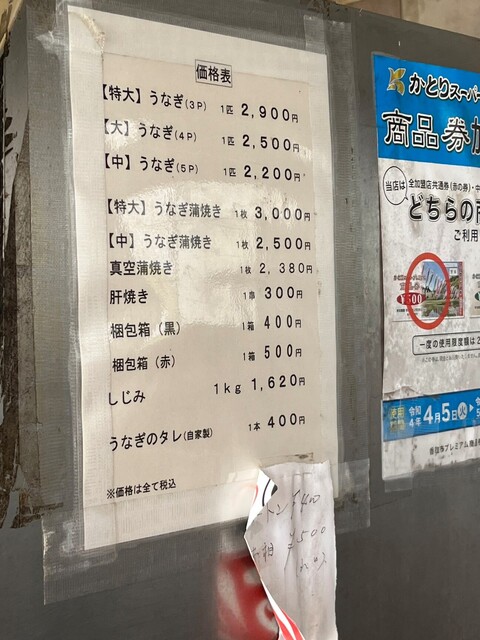 価格表
【特大】うなぎ(3P) 1匹 2,900円
【大】うなぎ(4P) 1匹 2,500円
【中】うなぎ(5P) 1匹 2,200円
【特大】うなぎ蒲焼き 1枚 3,000円
【中】うなぎ蒲焼き 1枚 2,500円
真空蒲焼き 1枚 2,380円
肝焼き 1串 300円
梱包箱（黒） 1箱 400円
梱包箱（赤） 1箱 500円
しじみ 1kg 1,620円
うなぎのタレ(自家製) 1本 400円
※価格は全て税込
¥400
¥500
かとりスーパー
商品券加
当店は
全加盟店共通券(赤の券)・中
どちらの商
ご利用
¥500
一度の使用限度額は2
使用
令和4年 4月5日火